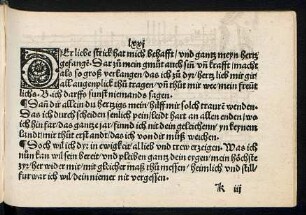 lxxi
DEr liebe strick hat mich behafft/ vnd gantz meyn hertz
gefangē. Dar zů mein gmüt auch siñ vñ krafft/ macht
als so groß verlangen/ das ich zů dyr/ hertz lieb mit gir
all augenplick thů tragen/ vñ thůt mir wee/ mein freut
lichs. B dörffs sunst niemands sagen.
¶ Dañ dir allein du hertzigs mein/ hilff mir solch traurē wenden.
Das ich durch scheiden senlich pein/ leidt hart an allen enden/ wo
ich hin far das gantze jar/ fünd ich nit dein gleichenn/ yn keynem
landt/ mir thüt erst andt/ das ich von dir můß weichen.
¶ Doch wil ich dyr in ewigkeit/ al lieb vnd trew erzeigen. Was ich
nün kan wil sein bereit/ vnd pleiben gantz dein eygen/ mein höchste
zyr/ her wider mir/ mit gleicher maß thů messen/ heimlich vnd still/
für war ich wil/ dein niemer nit vergessen.
K iij